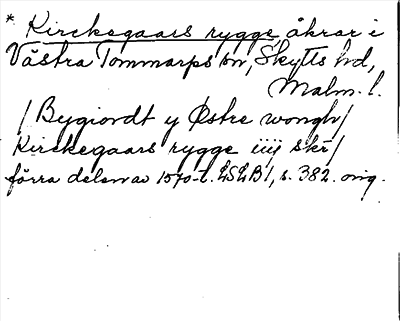 * Kirckegaars rygge, åkrar i
Västra Tommarps sn, Skytts hd,
Malm. l.
/ Bygiordt y Østre wongh /
Kirckegaars rygge iiij skr /
förra delen av 1570-t. LSLB 1, s. 382. orig.